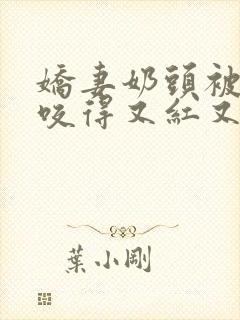 嬌妻奶頭被
咬得又紅又
葉小剛